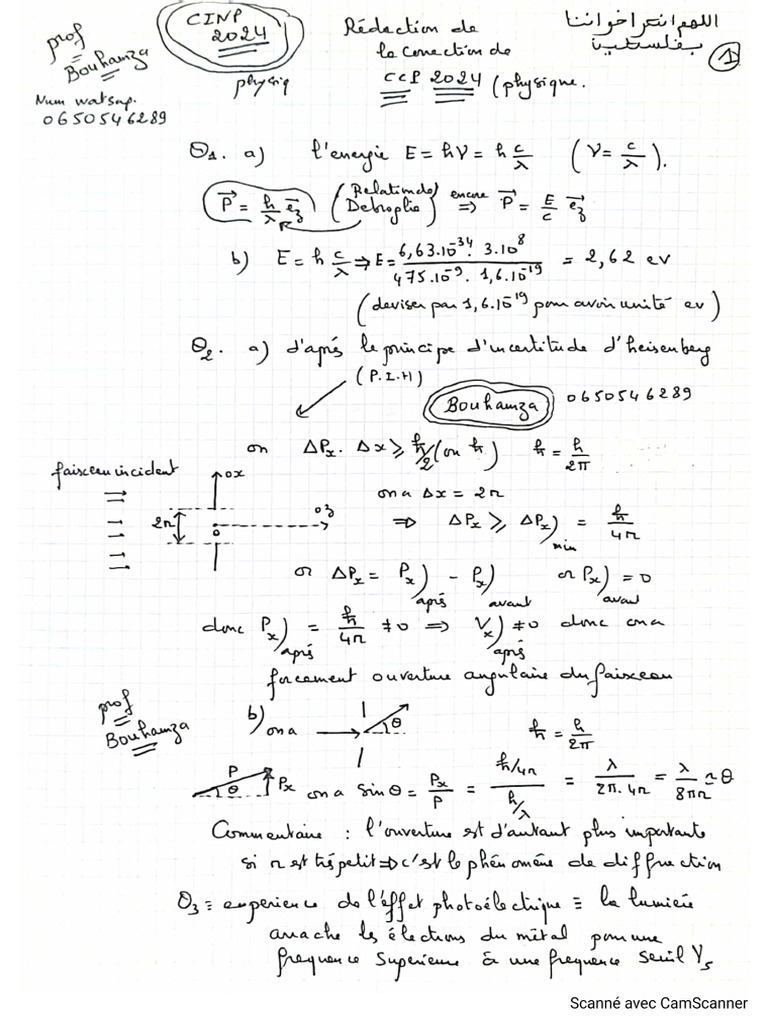 prof
Bouhamza
Num watsap.
0650546289
CINP
2024
physiq
Rédaction de
la correction de
CCP 2024 (physique.
اللهم انصر اخواننا
بفلسطين
1
Θ1. a) l'energie E = hν = h c/λ (ν = c/λ).
P⃗ = h/λ e⃗z (Relation de Debroglie) encore ⇒ P⃗ = E/c e⃗z
b) E = h c/λ ⇒ E = 6,63.10^-34 . 3.10^8 / 475.10^-9 . 1,6.10^-19 = 2,62 ev
(deviser par 1,6.10^-19 pour avoir unité ev)
Θ2. a) d'aprés le principe d'incertitude d'heisenberg
(P.I.H)
Bouhamza 0650546289
on ΔPx . Δx ≥ ħ/2 (ou ħ) ħ = h/2π
faisceau incident
ox
2r
o
oz
on a Δx = 2r
⇒ ΔPx ≥ ΔPx)min = ħ/4r
or ΔPx = Px)aprés - Px)avant or Px)avant = 0
donc Px)aprés = ħ/4r ≠ 0 ⇒ Vx)aprés ≠ 0 donc on a
forcement ouverture angulaire du faisceau
prof
Bouhamza
b) on a θ ħ = h/2π
P θ Px on a sin θ = Px/P = ħ/4r / h/λ = λ/2π.4r = λ/8πr ≃ θ
Commentaire : l'ouverture est d'autant plus importante
si r est trés petit ⇒ c'est le phénoméne de diffraction
Θ3 ≡ experience de l'effet photoélectrique ≡ la lumiére
arrache les électrons du métal pour une
frequence superieure à une frequence seuil νs
Scanné avec CamScanner